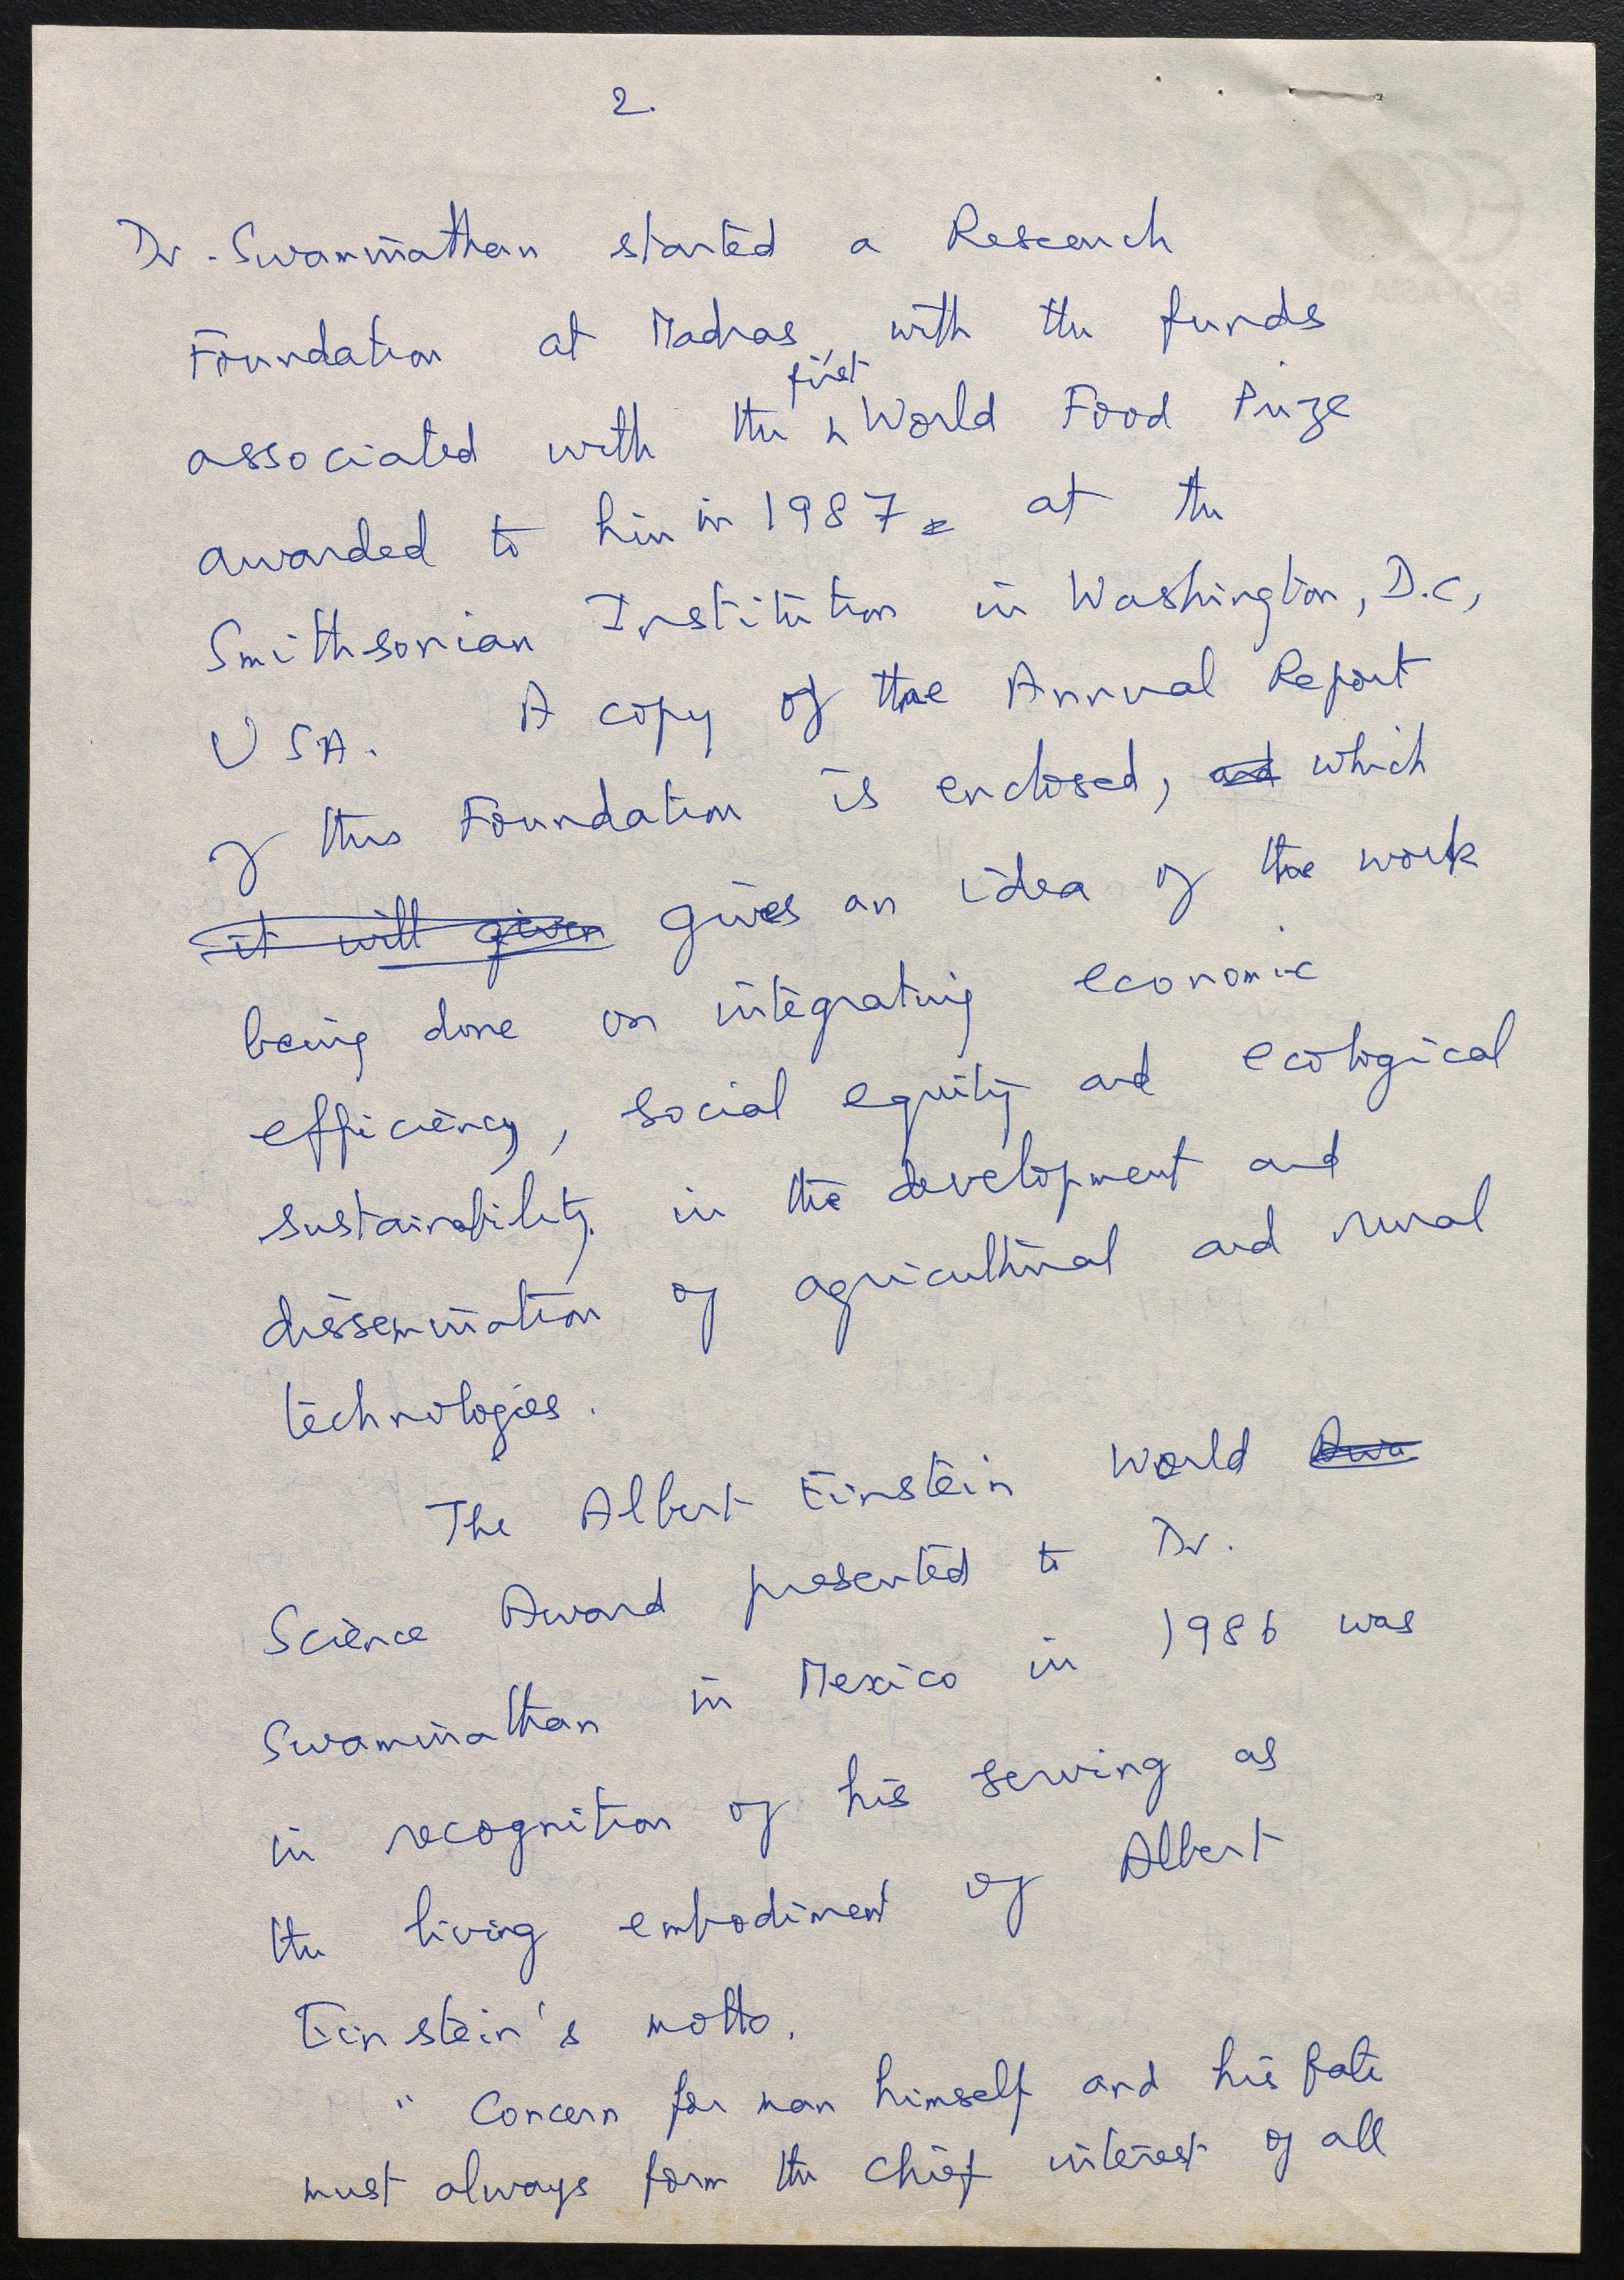 2.
Dr. Swaminathan started a Research
Foundation at Madras, with the funds
associated with the first World Food Prize
awarded to him in 1987 at the
Smithsonian Institution in Washington, D.C,
USA. A copy of the Annual Report
of this Foundation is enclosed, and which
it will given gives an idea of the work
being done on integrating economic
efficiency, social equity and ecological
sustainability in the development and
dissemination of agricultural and rural
technologies.
The Albert Einstein World Awa
Science Award presented to Dr.
Swaminathan in Mexico in 1986 was
in recognition of his serving as
the living embodiment of Albert
Einstein's motto.
" Concern for man himself and his fate
must always form the chief interest of all